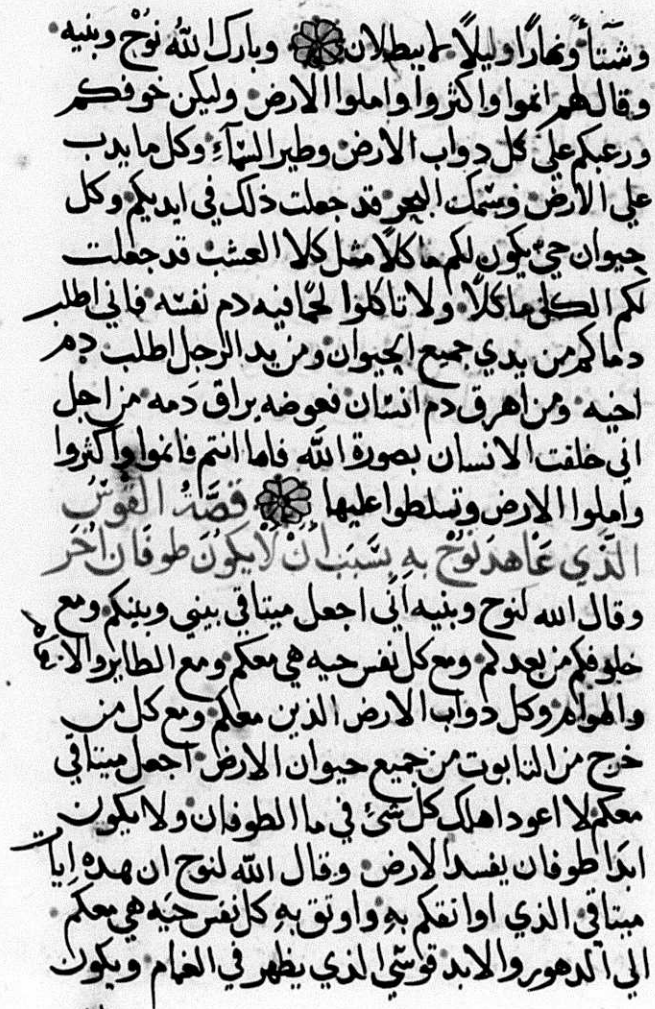 وشتآءً ونهارًا وليلًا لا يبطلان وبارك اللهُ نوْحْ وبنيه
وقال لهم انموا واكثروا واملوا الارض وليكن خوفكم
ورعبكم علي كل دواب الارض وطير السّمآءِ وكل ما يدب
علي الارض وسمك البحر قد جعلت ذلك في ايديكم وكل
حيوان حيّ يكون لكم ماكلًا مثل كلا العشب قد جعلت
لكم الكلى ماكلًا ولا تاكلوا لحمًا فيه دم نفسه فاني اطلب
دماكم من يدي جميع الحيوان ومن يد الرجل اطلب دم
اخيه ومن اهرق دم انسان فعوضه يراق دَمه من اجل
اني خلقت الانسان بصورة الله فاما انتم فانموا واكثروا
واملوا الارض وتسلطوا عليها قصَّةُ القَوسُ
الَّذِي عَاهدَ نوُحْ بهِ بسَبَب انْ لاْ يكونَ طوفَان اخَر
وقال الله لنوح وبنيه اَنّي اجعل ميتاقي بيني وبينكم ومع
خلوفكم من بعدكم ومع كل نفس حيه هي معكم ومع الطاير والانعام
والهوام وكل دواب الارض الذين معكم ومع كل من
خرج من التابوت من جميع حيوان الارض اجعل ميتاقي
معكم لا اعود اهلك كل شئ في ما الطوفان ولا يكون
ابدًا طوفان يفسد الارض وقال الله لنوح ان هده اٍيات
ميتاقي الذي اواتقكم بهِ واوتق بهِ كل نفس حيَه هي معكم
الي الدهور والابد قوسَي الذي يظهر في الغمام ويكون